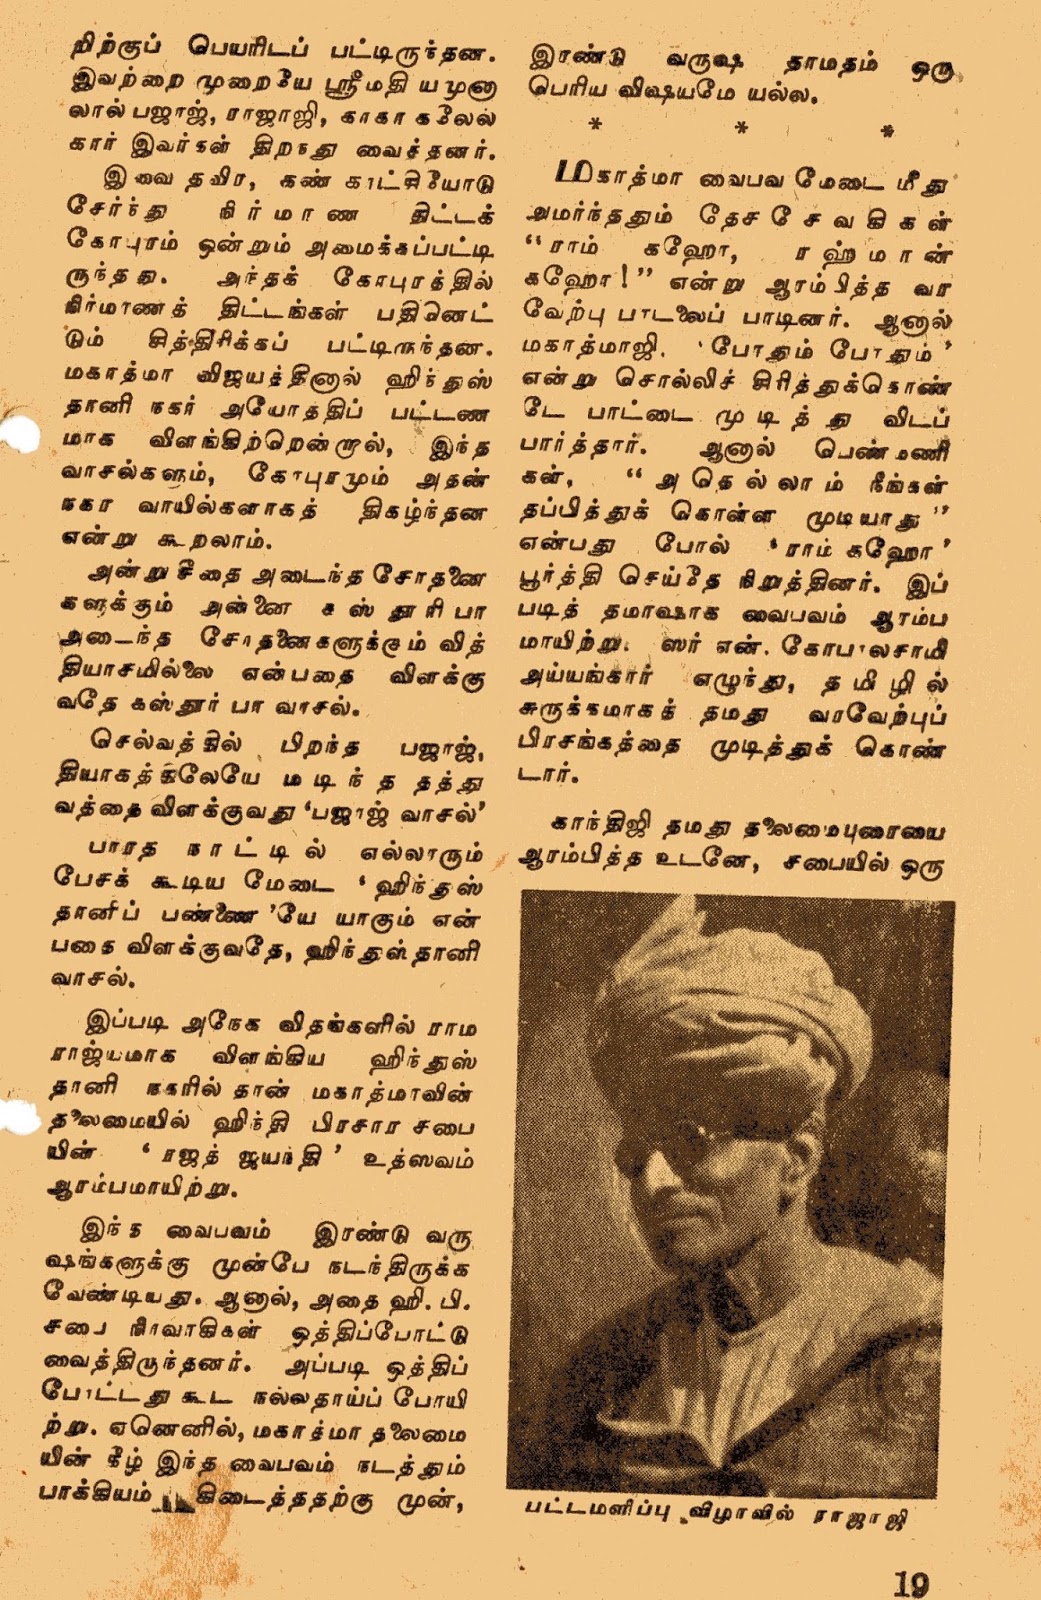 றிற்குப் பெயரிடப் பட்டிருந்தன.
இவற்றை முறையே ஸ்ரீமதி யமுனா
லால் பஜாஜ், ராஜாஜி, காகா கலேல்
கார் இவர்கள் திறந்து வைத்தனர்.
இவை தவிர, கண் காட்சியோடு
சேர்ந்து நிர்மாண திட்டக்
கோபுரம் ஒன்றும் அமைக்கப்பட்டி
ருந்தது. அந்தக் கோபுரத்தில்
நிர்மாணத் திட்டங்கள் பதினெட்
டும் சித்திரிக்கப் பட்டிருந்தன.
மகாத்மா விஜயத்தினால் ஹிந்துஸ்
தானி நகர் அயோத்திப் பட்டண
மாக விளங்கிற்றென்றால், இந்த
வாசல்களும், கோபுரமும் அதன்
நகர வாயில்களாகத் திகழ்ந்தன
என்று கூறலாம்.
அன்று சீதை அடைந்த சோதனை
களுக்கும் அன்னை கஸ்தூரிபா
அடைந்த சோதனைகளுக்கும் வித்
தியாசமில்லை என்பதை விளக்கு
வதே கஸ்தூர் பா வாசல்.
செல்வத்தில் பிறந்த பஜாஜ்,
தியாகத்திலேயே மடிந்த தத்து
வத்தை விளக்குவது ‘பஜாஜ் வாசல்’
பாரத நாட்டில் எல்லாரும்
பேசக் கூடிய மேடை ‘ஹிந்துஸ்
தானிப் பண்ணை’யே யாகும் என்
பதை விளக்குவதே, ஹிந்துஸ்தானி
வாசல்.
இப்படி அநேக விதங்களில் ராம
ராஜ்யமாக விளங்கிய ஹிந்துஸ்
தானி நகரில் தான் மகாத்மாவின்
தலைமையில் ஹிந்தி பிரசார சபை
யின் ‘ரஜத் ஜயந்தி’ உத்ஸவம்
ஆரம்பமாயிற்று.
இந்த வைபவம் இரண்டு வரு
ஷங்களுக்கு முன்பே நடந்திருக்க
வேண்டியது. ஆனால், அதை ஹி. பி.
சபை நிர்வாகிகள் ஒத்திப்போட்டு
வைத்திருந்தனர். அப்படி ஒத்திப்
போட்டது கூட நல்லதாய்ப் போயி
ற்று. ஏனெனில், மகாத்மா தலைமை
யின் கீழ் இந்த வைபவம் நடத்தும்
பாக்கியம் கிடைத்ததற்கு முன்,
இரண்டு வருஷ தாமதம் ஒரு
பெரிய விஷயமே யல்ல.
* * *
மகாத்மா வைபவ மேடை மீது
அமர்ந்ததும் தேச சேவகிகள்
“ராம் கஹோ, ரஹ்மான்
கஹோ!” என்று ஆரம்பித்த வர
வேற்பு பாடலைப் பாடினர். ஆனால்
மகாத்மாஜி. ‘போதும் போதும்’
என்று சொல்லிச் சிரித்துக்கொண்
டே பாட்டை முடித்து விடப்
பார்த்தார். ஆனால் பெண்மணி
கள், “அதெல்லாம் நீங்கள்
தப்பித்துக் கொள்ள முடியாது”
என்பது போல் ‘ராம் கஹோ’
பூர்த்தி செய்தே நிறுத்தினர். இப்
படித் தமாஷாக வைபவம் ஆரம்ப
மாயிற்று. ஸர் என். கோபாலசாமி
அய்யங்கார் எழுந்து, தமிழில்
சுருக்கமாகத் தமது வரவேற்புப்
பிரசங்கத்தை முடித்துக் கொண்
டார்.
காந்திஜி தமது தலைமையுரையை
ஆரம்பித்த உடனே, சபையில் ஒரு
பட்டமளிப்பு விழாவில் ராஜாஜி
19